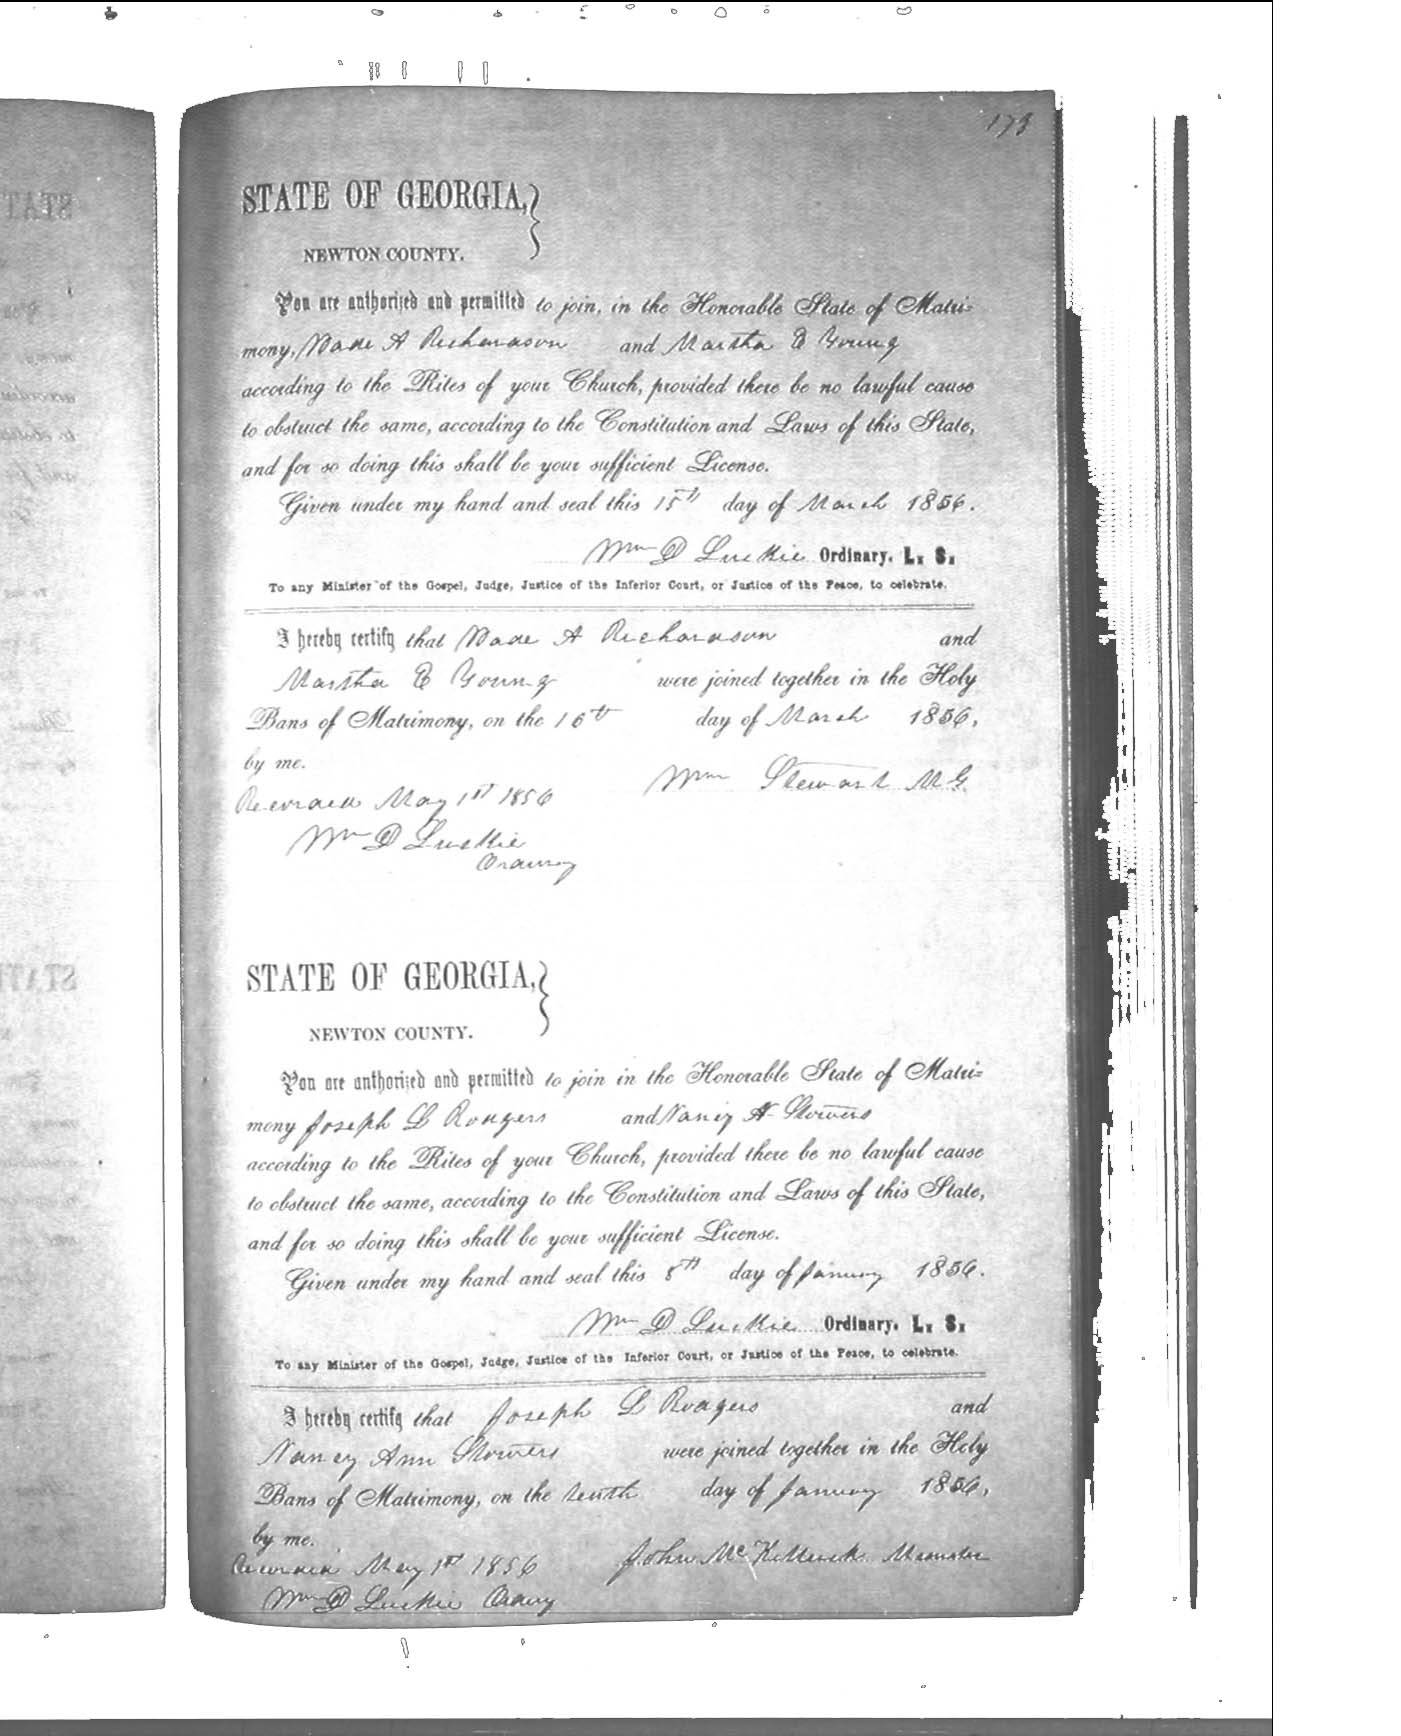 173
STATE OF GEORGIA,
NEWTON COUNTY.
You are authorized and permitted to join, in the Honorable State of Matri-
mony, Wade A Richardson and Martha E Young
according to the Rites of your Church, provided there be no lawful cause
to obstruct the same, according to the Constitution and Laws of this State,
and for so doing this shall be your sufficient License.
Given under my hand and seal this 15th day of March 1856.
Wm D Luckie Ordinary. L. S.
To any Minister of the Gospel, Judge, Justice of the Inferior Court, or Justice of the Peace, to celebrate.
I hereby certify that Wade A Richardson and
Martha E Young were joined together in the Holy
Bans of Matrimony, on the 16th day of March 1856,
by me.
Wm Stewart M G
Recorded May 1st 1856
Wm D Luckie
Ordinary
STATE OF GEORGIA,
NEWTON COUNTY.
You are authorized and permitted to join in the Honorable State of Matri-
mony Joseph L Rodgers and Nancy A Stowers
according to the Rites of your Church, provided there be no lawful cause
to obstruct the same, according to the Constitution and Laws of this State,
and for so doing this shall be your sufficient License.
Given under my hand and seal this 8th day of January 1856.
Wm D Luckie Ordinary. L. S.
To any Minister of the Gospel, Judge, Justice of the Inferior Court, or Justice of the Peace, to celebrate.
I hereby certify that Joseph L Rodgers and
Nancy Ann Stowers were joined together in the Holy
Bans of Matrimony, on the tenth day of January 1856,
by me.
Recorded May 1st 1856 John Mc
Wm D Luckie Ordry